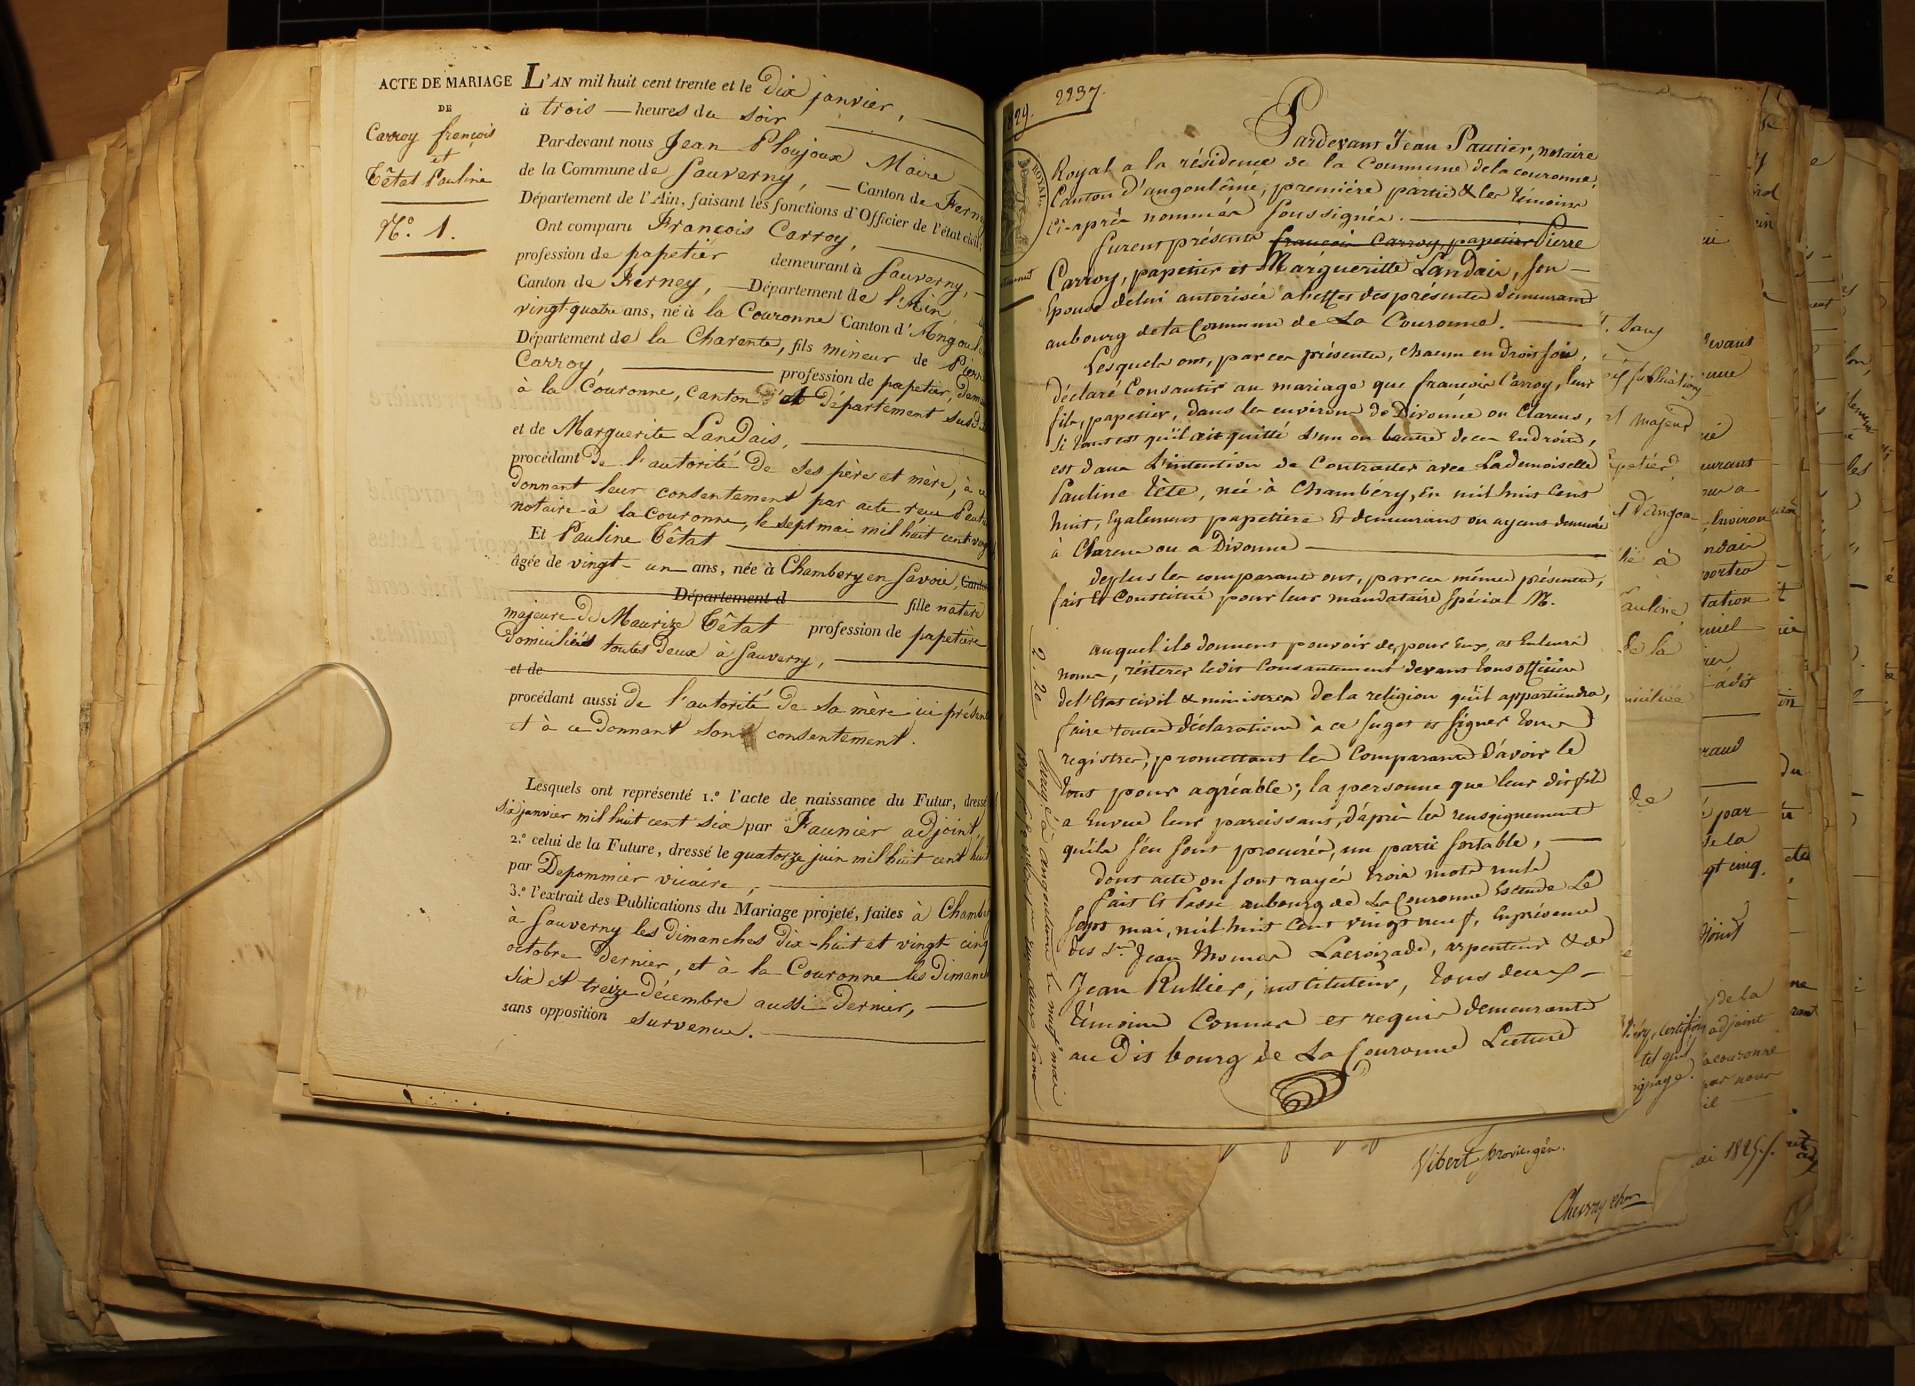 ACTE DE MARIAGE
DE
Carroy françois
et
Têtat Pauline
N.o 1.
L'AN mil huit cent trente et le dix janvier,
à trois heures du soir
Par-devant nous Jean Ploujoux Maire
de la Commune de Sauverny, Canton de Fern
Département de l'Ain, faisant les fonctions d'Officier de l'état civil;
Ont comparu François Carroy,
profession de papetier demeurant à Sauverny,
Canton de Ferney, Département de l'Ain
vingt-quatre ans, né à la Couronne Canton d'Angoul
Département de la Charente, fils mineur de Pierr
Carroy, profession de papetier, dem
à la Couronne, canton et département susd
et de Marguerite Landais,
procédant de l'autorité de ses père et mère, à c
donnant leur consentement par acte reçu Paut
notaire à la Couronne, le sept mai mil huit cent ving
Et Pauline Têtat
âgée de vingt-un ans, née à Chambery en Savoie, Canto
Département d fille nature
majeure de Maurize Têtat profession de papetière
domiciliées toutes deux a Sauverny,
et de
procédant aussi de l'autorité de sa mère ici présen
et à ce donnant son consentement.
Lesquels ont représenté 1.º l'acte de naissance du Futur, dressé
six janvier mil huit cent six par Faunier adjoint,
2.º celui de la Future, dressé le quatorze juin mil huit cent huit
par Depommier vicaire,
3.º l'extrait des Publications du Mariage projeté, faites à Chamb
à Sauverny les dimanches dix-huit et vingt cinq
octobre dernier, et à la Couronne les diman
six et treize décembre aussi dernier,
sans opposition survenue.
2237.
Pardevant Jean Pautier, notaire
Royal a la résidence de la Commune de la couronne,
Canton d'angoulême, première partie & les témoins
Ci-après nommés soussignés.
furent présents françois Carroy, papetier Pierre
Carroy, papetier et Margueritte Landais, son
Epouse de lui autorisée a l'effet des présentes demeurant
au bourg de la Commune de La Couronne.
Lesquels ont, par ces présentes, chacun en droit soi,
déclaré Consentir au mariage que françois Carroy, leur
fils, papetier, dans les environs de Divonne ou Clarens,
si tant est qu'il ait quitté l'un ou l'autre de ces Endroits,
est dans L'intention de Contracter avec Lademoiselle
Pauline Tête, née à Chambéry, en mil huit Cent
huit, Egalement papetière & demeurant ou ayant demeuré
à Clarens ou a Divonne
deplus les comparants ont, par ces mêmes présentes,
fait Et Constitué pour leur mandataire Spécial M.
auquel ils donnent pouvoir de, pour Eux, et En leurs
noms, réitérer ledit Consentement devant tous officiers
de l'Etat civil & ministres de la religion qu'il appartiendra,
faire toutes déclarations à ce sujet et signer tous
registres, promettant les Comparants d'avoir le
tout pour agréable; la personne que leur dit fils
a En vue leur paraissant, d'après les renseignements
qu'ils s'en sont procurés, un parti sortable,
dont acte ou sont rayés trois mots nuls
fait Et Passé au bourg de La Couronne Etude Le
sept mai, mil huit Cent vingt neuf, En présence
des S.rs Jean Lacroizade, arpenteur & de
Jean Rullier, instituteur, tous deux
témoins Connus et requis demeurants
au Dit bourg de La Couronne Lecture
Vibert
Chevray